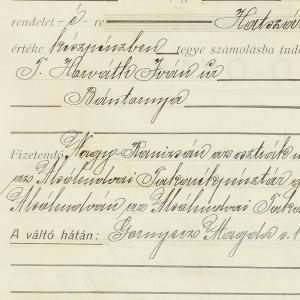 rendelet - é - re Hatszá
értéke készpénzben tegye számolásba tud
T. Horváth Iván úr
Bántornya
Fizetendő Nagy-Kanizsán az osztrák
az Alsólendvai Takarékpénztár
Alsólendván az Alsólendvai Taka
A váltó hátán: Gornyecz Magda s. k